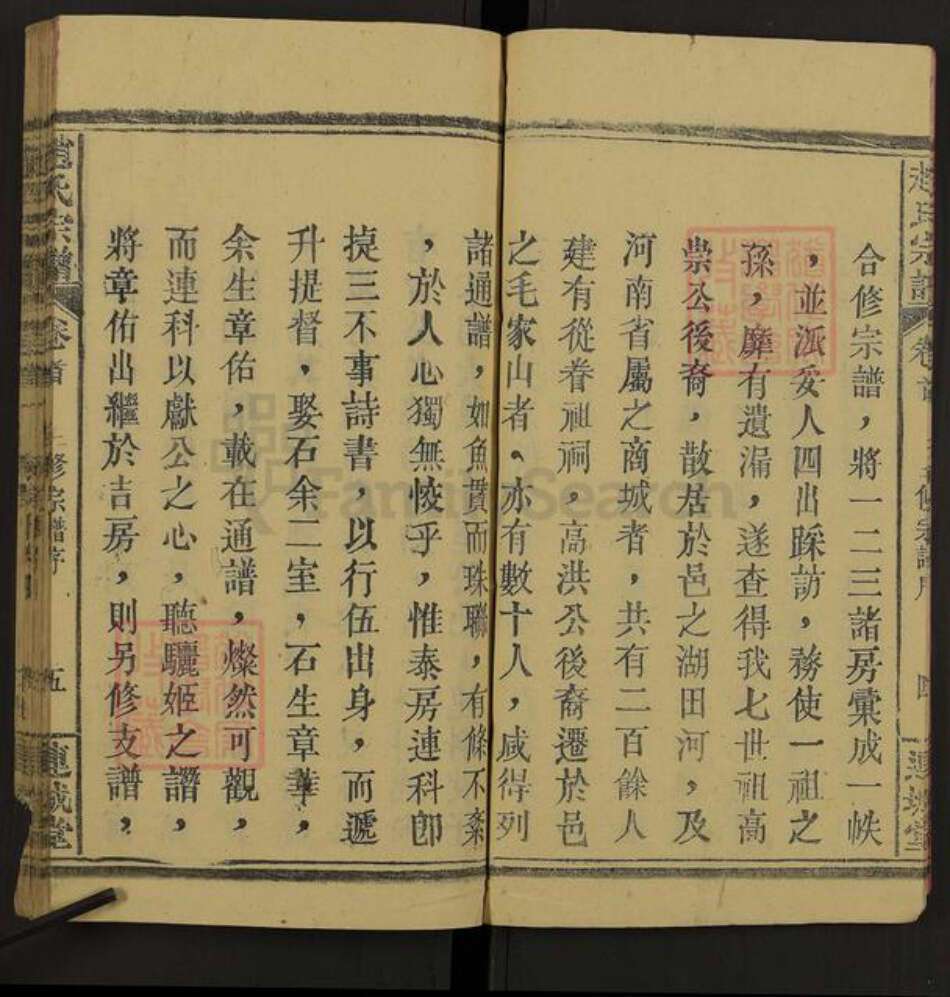 趙氏宗譜 卷首 修宗譜序 四 連城堂
合修宗譜，將一二三諸房彙成一帙
，並派妥人四出踩訪，務使一祖之
孫，靡有遺漏，遂查得我七世祖高
崇公後裔，散居於邑之湖田河，及
河南省屬之商城者，共有二百餘人
建有從眷祖祠，高洪公後裔遷於邑
之毛家山者，亦有數十人，咸得列
諸通譜，如魚貫而珠聯，有條不紊
，於人心獨無恔乎，惟泰房連科卽
㨗三不事詩書，以行伍出身，而遞
升提督，娶石余二室，石生章華，
余生章佑，載在通譜，燦然可觀，
而連科以獻公之心，聽驪姬之譖，
將章佑出繼於吉房，則另修支譜，
趙氏宗譜 卷首 修宗譜序 五 連城堂
FamilySearch